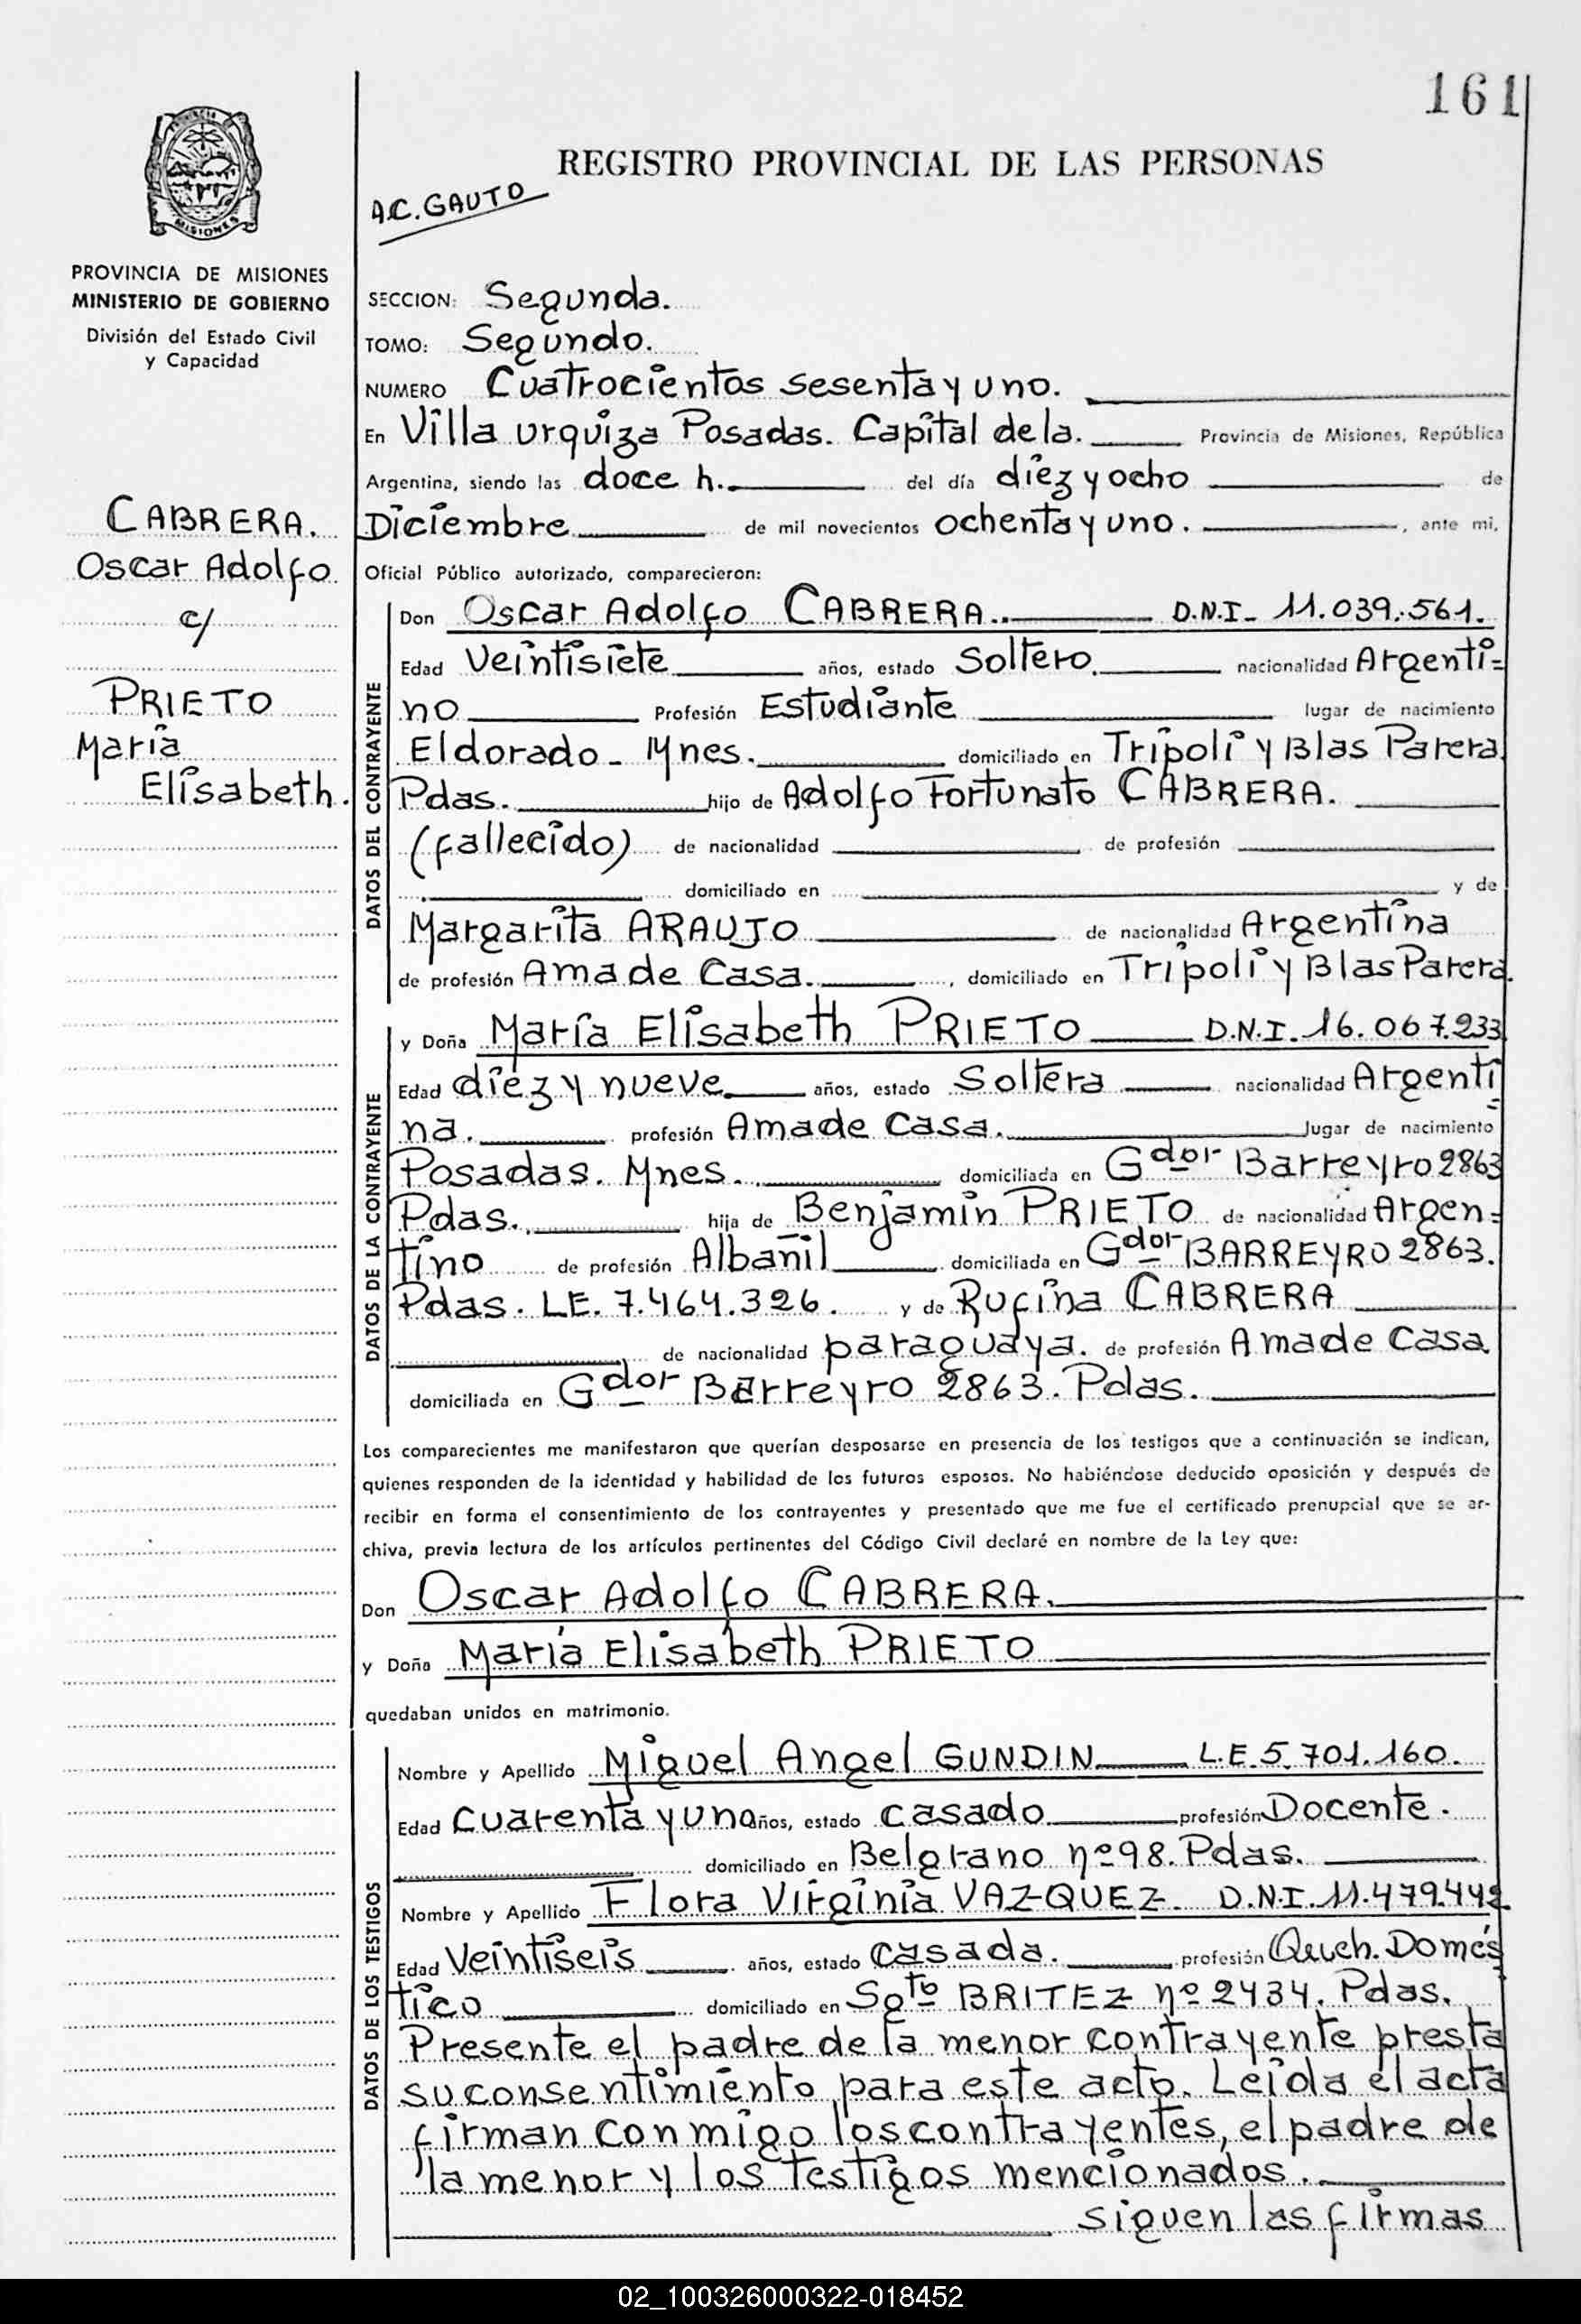 161
REGISTRO PROVINCIAL DE LAS PERSONAS
A.C. GAUTO
MISIONES
PROVINCIA DE MISIONES
MINISTERIO DE GOBIERNO
División del Estado Civil
y Capacidad
CABRERA.
Oscar Adolfo
c/
PRIETO
María
Elisabeth.
SECCION: Segunda.
TOMO: Segundo.
NUMERO Cuatrocientos sesenta y uno.
En Villa Urquiza Posadas. Capital de la. Provincia de Misiones, República
Argentina, siendo las doce h. del día diez y ocho de
Diciembre de mil novecientos ochenta y uno. , ante mi,
Oficial Público autorizado, comparecieron:
DATOS DEL CONTRAYENTE
Don Oscar Adolfo CABRERA. D.N.I- 11.039.561.
Edad Veintisiete años, estado Soltero. nacionalidad Argenti=
no Profesión Estudiante lugar de nacimiento
Eldorado - Mnes. domiciliado en Trípoli y Blas Parera
Pdas. hijo de Adolfo Fortunato CABRERA.
(fallecido) de nacionalidad de profesión
domiciliado en y de
Margarita ARAUJO de nacionalidad Argentina
de profesión Ama de Casa. , domiciliado en Trípoli y Blas Parera.
DATOS DE LA CONTRAYENTE
y Doña María Elisabeth PRIETO D.N.I. 16.067.233
Edad diez y nueve años, estado Soltera nacionalidad Argenti=
na. profesión Ama de Casa. lugar de nacimiento
Posadas. Mnes. domiciliada en Gdor Barreyro 2863
Pdas. hija de Benjamín PRIETO de nacionalidad Argen=
tino de profesión Albañil domiciliada en Gdor BARREYRO 2863.
Pdas. LE. 7.464.326. y de Rufina CABRERA
de nacionalidad paraguaya. de profesión Ama de Casa.
domiciliada en Gdor Barreyro 2863. Pdas.
Los comparecientes me manifestaron que querían desposarse en presencia de los testigos que a continuación se indican,
quienes responden de la identidad y habilidad de los futuros esposos. No habiéndose deducido oposición y después de
recibir en forma el consentimiento de los contrayentes y presentado que me fue el certificado prenupcial que se ar-
chiva, previa lectura de los artículos pertinentes del Código Civil declaré en nombre de la Ley que:
Don Oscar Adolfo CABRERA.
y Doña María Elisabeth PRIETO
quedaban unidos en matrimonio.
DATOS DE LOS TESTIGOS
Nombre y Apellido Miguel Angel GUNDIN L.E.5.701.160.
Edad Cuarenta y uno años, estado casado profesión Docente.
domiciliado en Belgrano nº 98. Pdas.
Nombre y Apellido Flora Virginia VAZQUEZ. D.N.I. 11.479.442
Edad Veintiseis años, estado casada. profesión Queh. Domés
tico domiciliado en Sgto BRITEZ nº 2434. Pdas.
Presente el padre de la menor contrayente presta
su consentimiento para este acto. Leida el acta
firman conmigo los contrayentes, el padre de
la menor y los testigos mencionados.
siguen las firmas
02_100326000322-018452